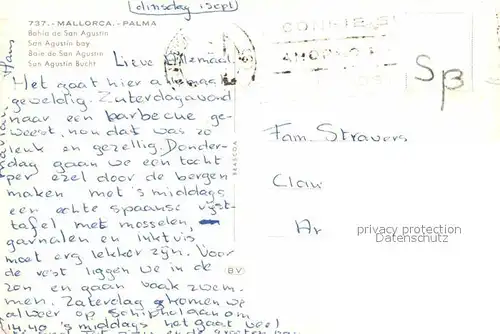 dinsdag 1 sept
737.- MALLORCA.- PALMA
Bahía de San Agustín
San Agustin bay
Baie de San Agustin
San Agustin Bucht
Lieve allemaal,
Het gaat hier allemaal
geweldig. Zaterdagavond
naar een barbecue ge-
weest, nou dat was zo
leuk en gezellig. Donder-
dag gaan we een tocht
per ezel door de bergen
maken met 's middags
een echte spaanse rijst-
tafel met mosselen,
garnalen en inktvis
moet erg lekker zijn. Voor
de rest liggen we in de
zon en gaan vaak zwem-
men. Zaterdag komen we
alweer op Schiphol aan om
's middags het gaat veel
en de groeten van
Hans
PRASCOA
BV
Fam. Stravers
privacy protection
Datenschutz